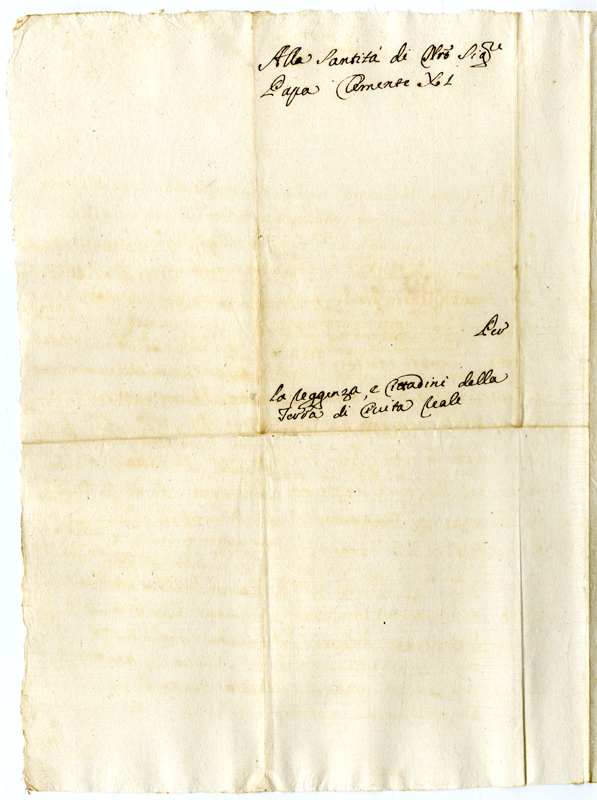 Alla Santità di Nrō Sigre
Papa Clemente XI
Per
La Reggenza, e Cittadini della
Terra di Civita Reale